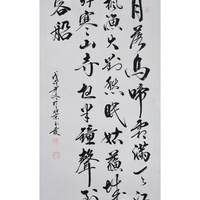 月落烏啼霜滿天江
楓漁火對愁眠姑蘇城
外寒山寺夜半鐘聲到
客船